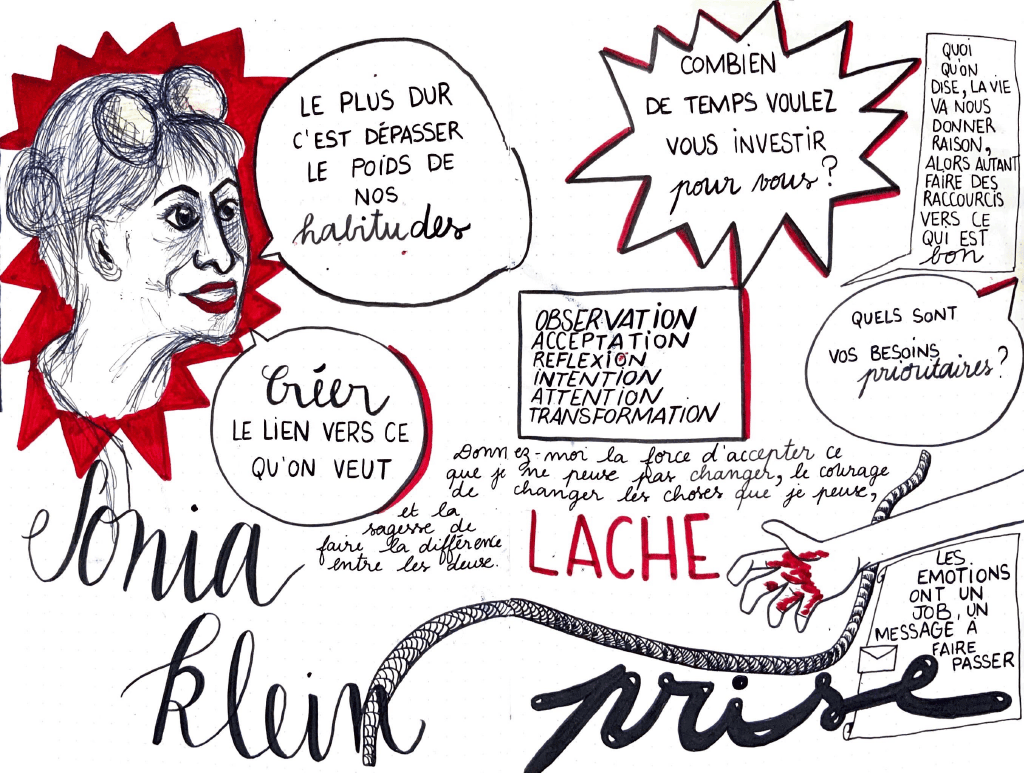 LE PLUS DUR
C'EST DÉPASSER
LE POIDS DE
NOS
habitudes
COMBIEN
DE TEMPS VOULEZ
VOUS INVESTIR
pour vous?
QUOI
QU'ON
DISE, LA VIE
VA NOUS
DONNER
RAISON,
ALORS AUTANT
FAIRE DES
RACCOURCIS
VERS CE
QUI EST
bon
Créer
LE LIEN VERS CE
QU'ON VEUT
OBSERVATION
ACCEPTATION
REFLEXION
INTENTION
ATTENTION
TRANSFORMATION
QUELS SONT
VOS BESOINS
prioritaires?
Donnez-moi la force d'accepter ce
que je ne peux pas changer, le courage
de changer les choses que je peux,
et la
sagesse de
faire la différence
entre les deux.
Sonia
klein
LACHE
prise
LES
EMOTIONS
ONT UN
JOB, UN
MESSAGE À
FAIRE
PASSER